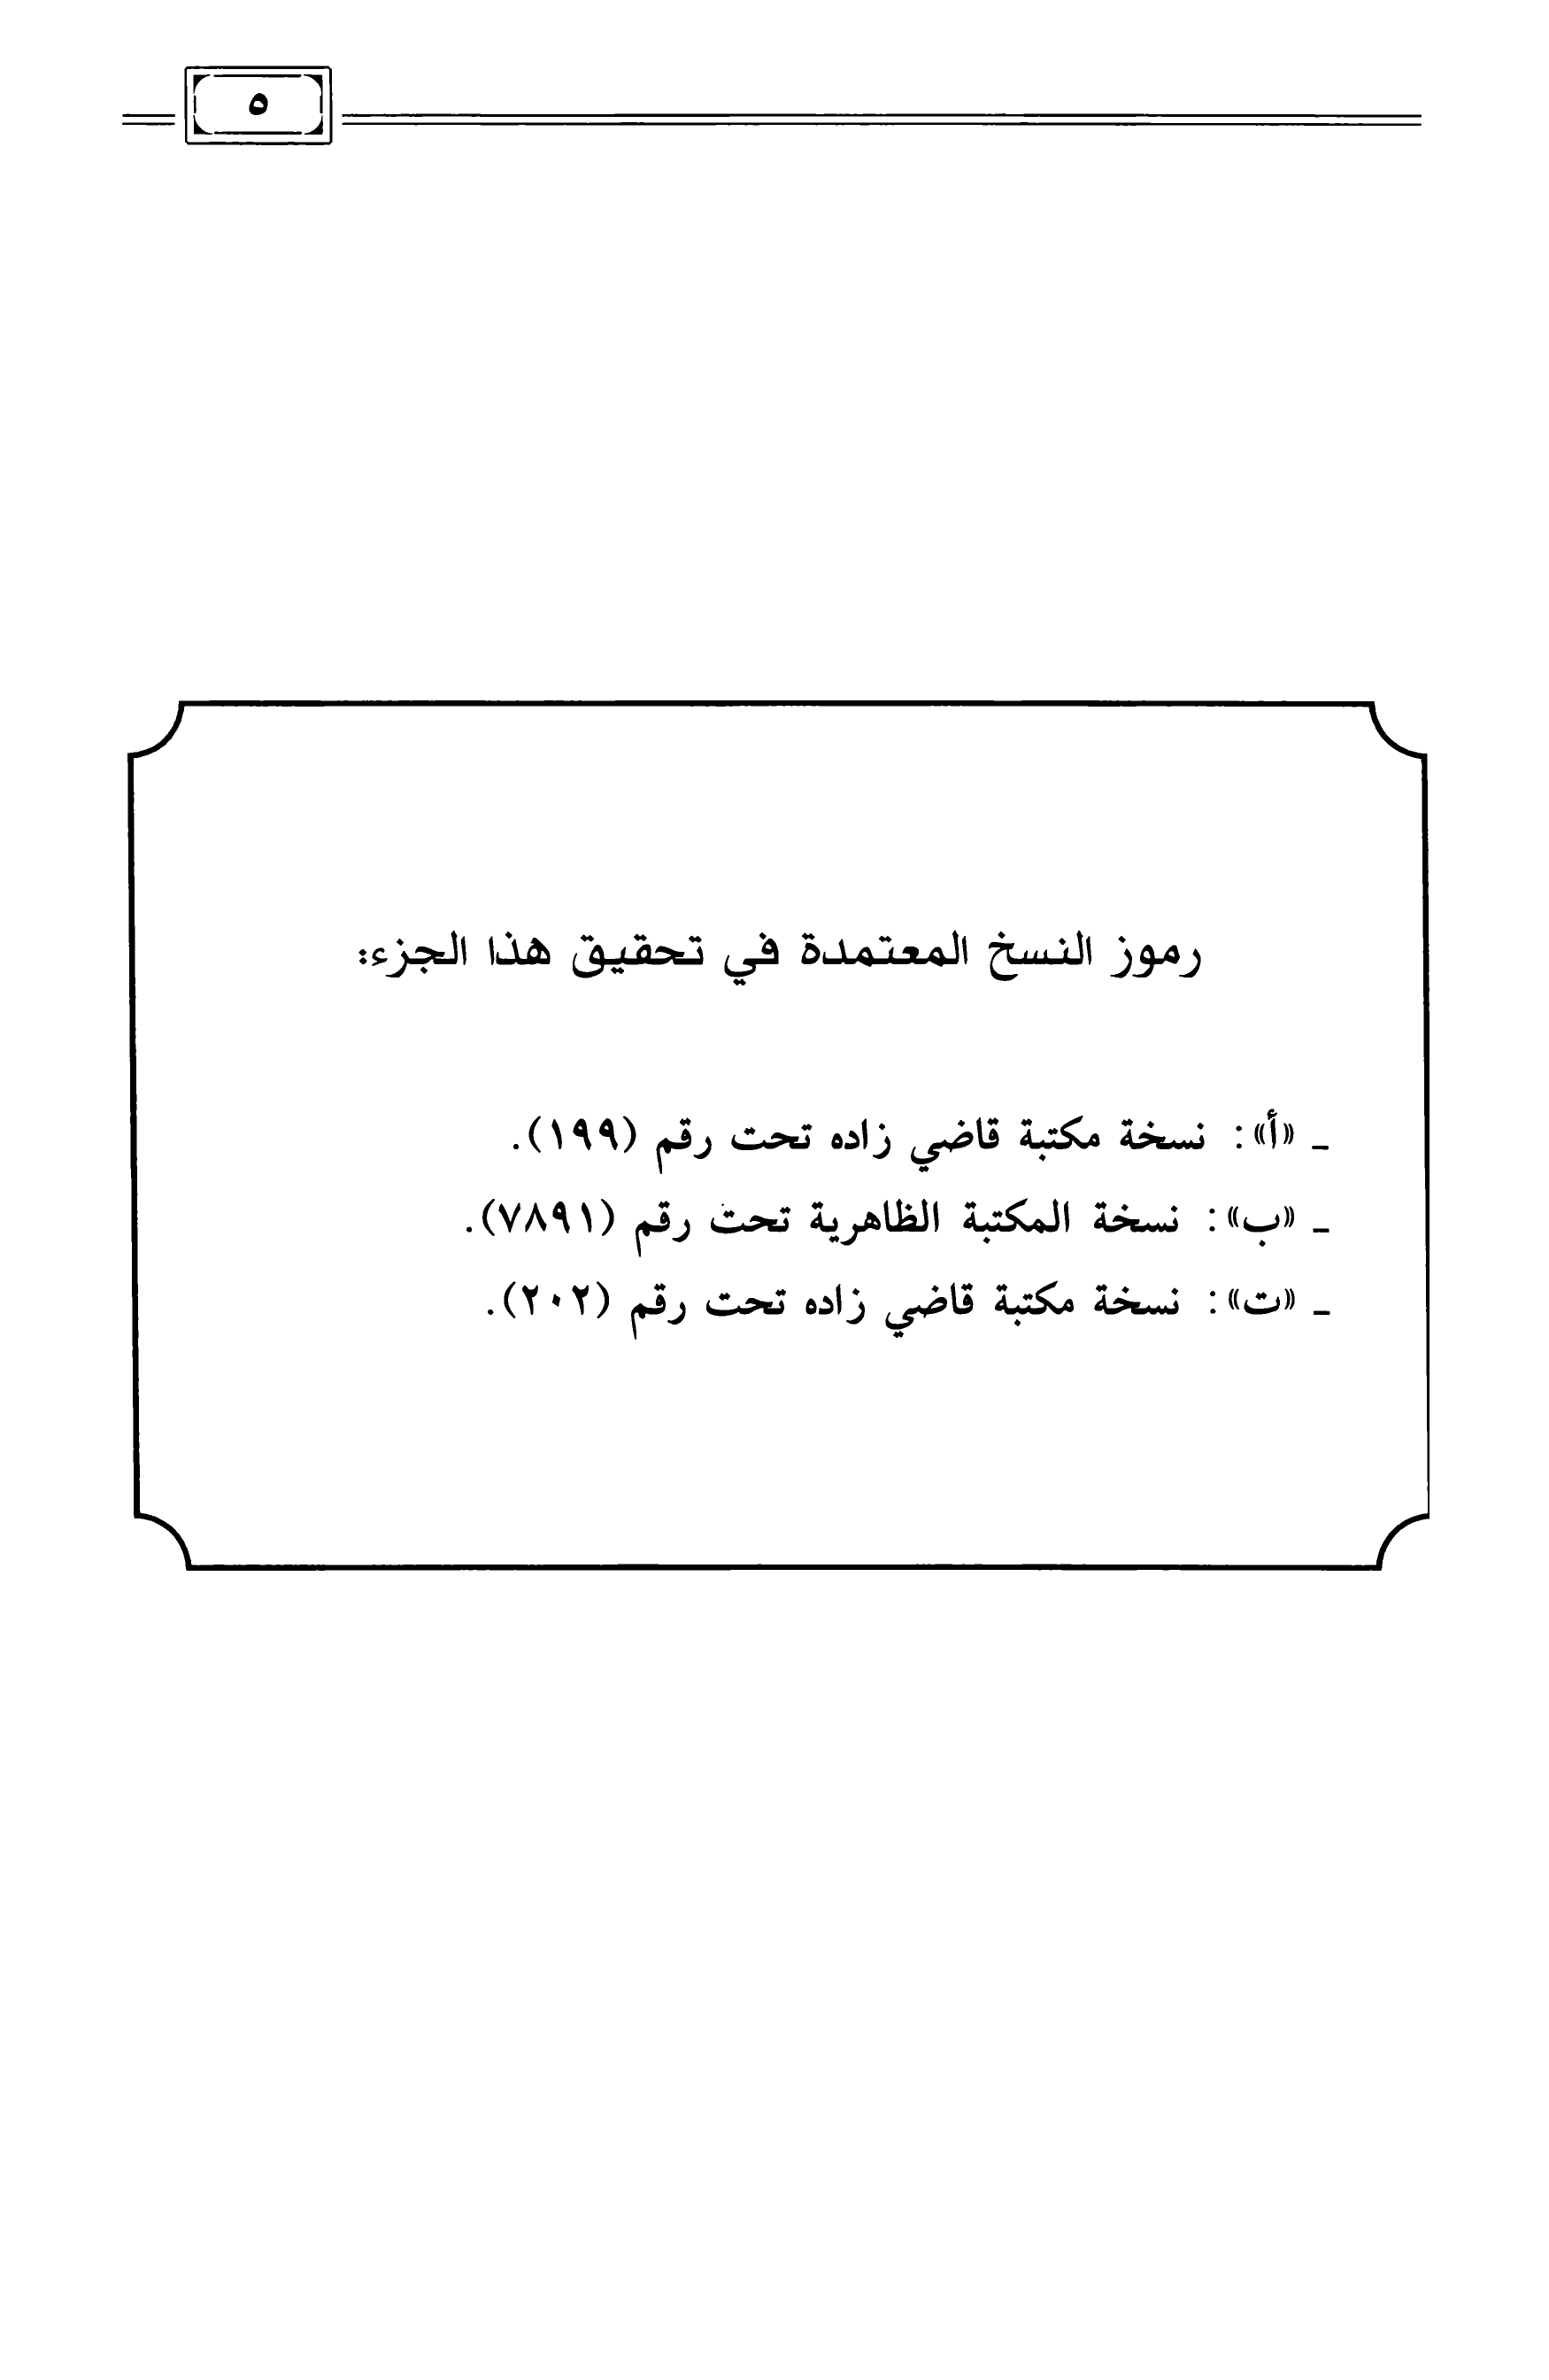 ٥
رموز النسخ المعتمدة في تحقيق هذا الجزء:
ـ «أ»: نسخة مكتبة قاضي زاده تحت رقم (١٩٩).
ـ «ب»: نسخة المكتبة الظاهرية تحت رقم (٧٨٩١).
ـ «ت»: نسخة مكتبة قاضي زاده تحت رقم (٢٠٢).